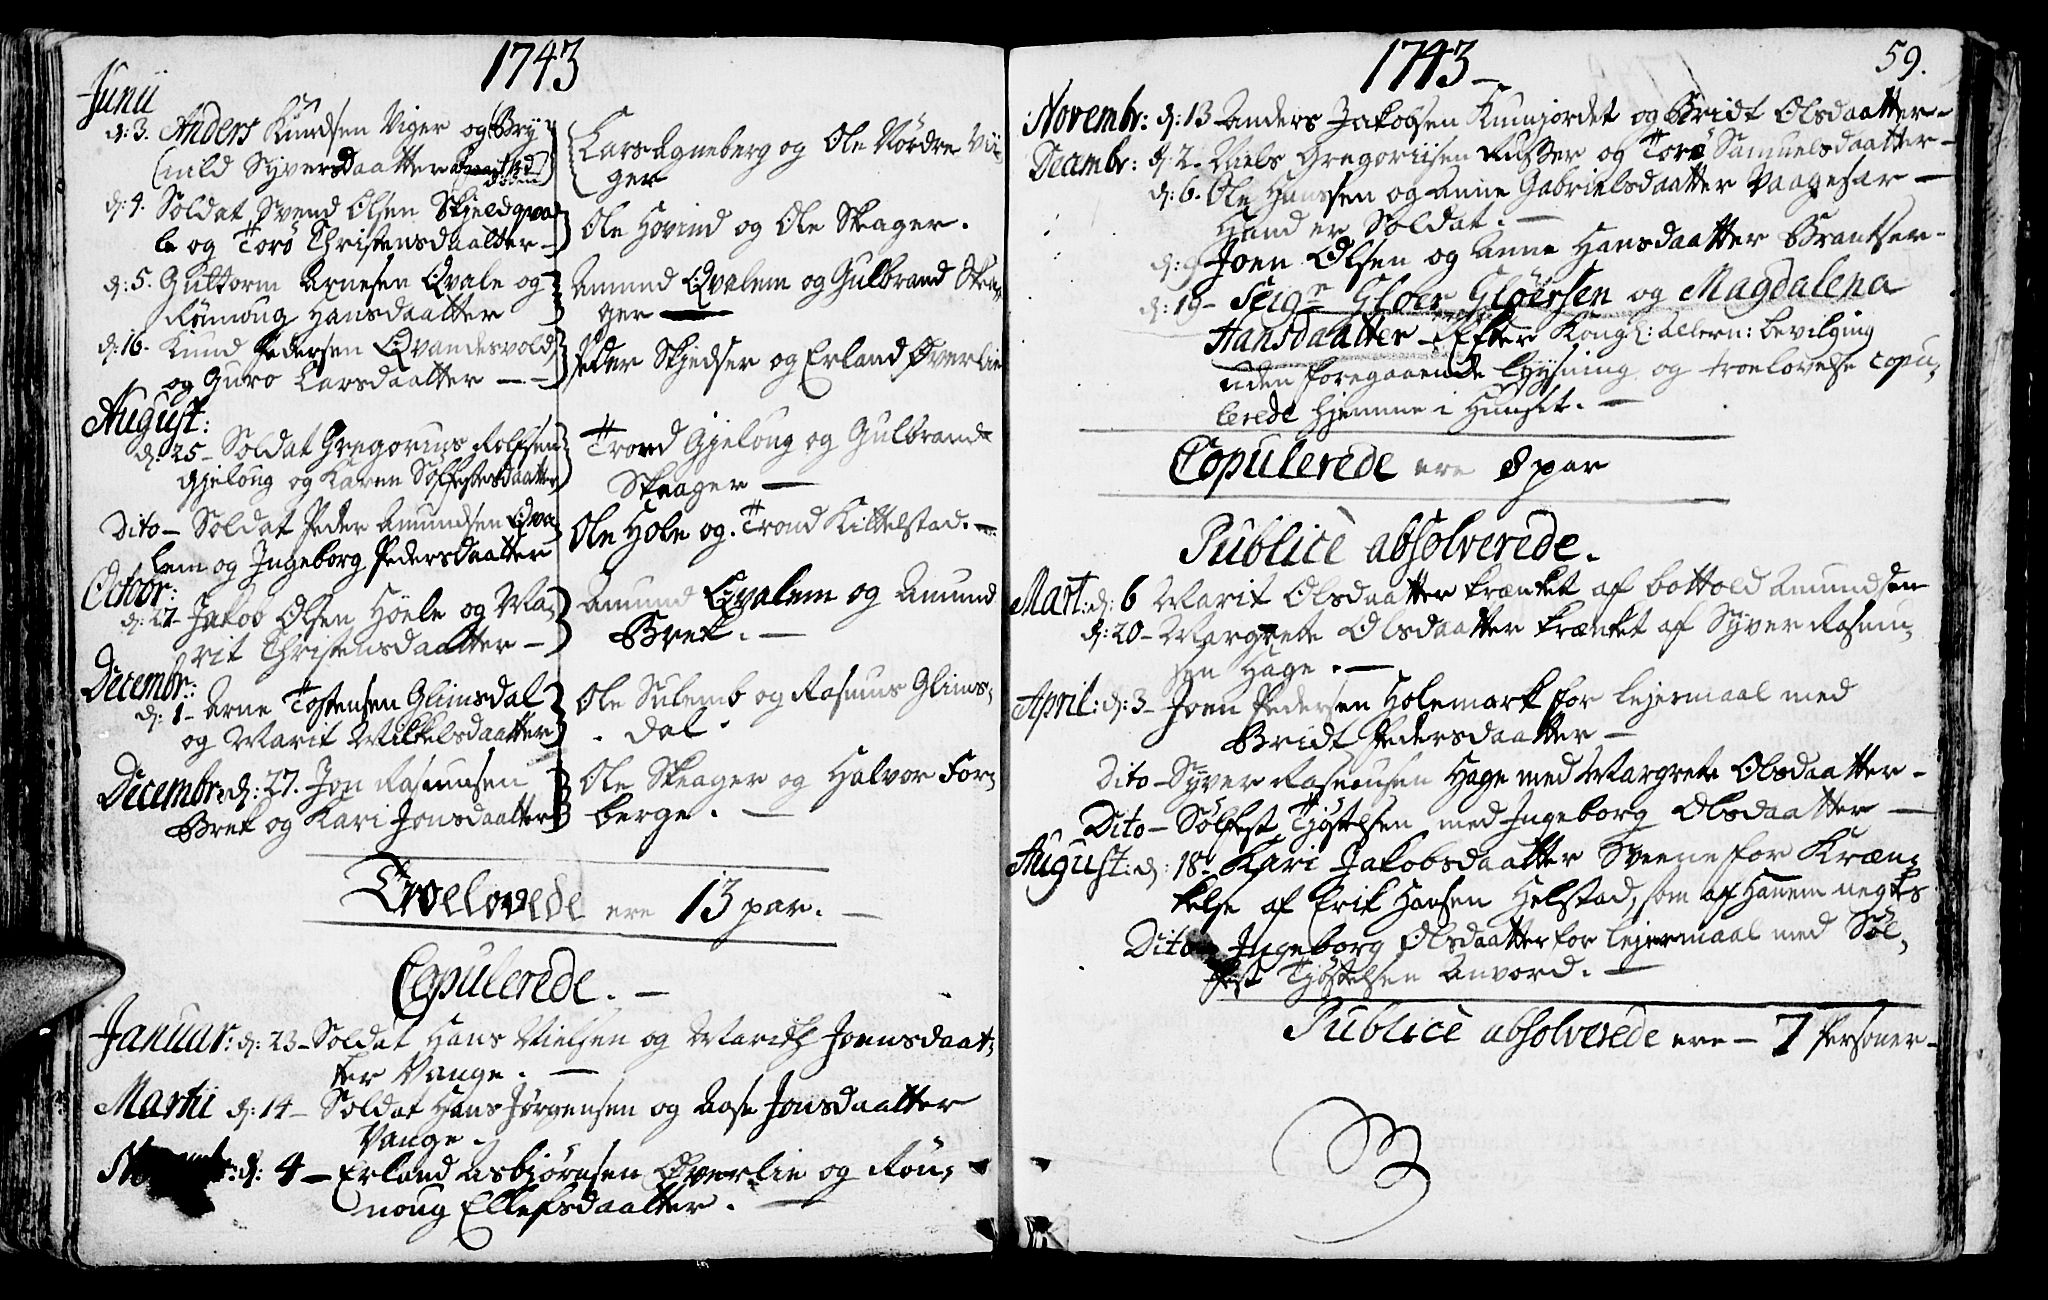 1743
Junii
d: 3. Anders Knudsen Viger og Bry-
nild Syversdaatter
Lars Agneberg og Ole Nørdre Vi-
ger
d: 4. Soldat Svend Olsen Skjeldqva-
le og Torø Christensdaatter
Ole Hovind og Ole Skager.
d: 5. Guttorm Arnesen Qvale og
Rønnoug Hansdaatter
Amund Qvalem og Gulbrand Skea-
ger
d: 16. Knud Pedersen Qvandesvold
og Guro Larsdaatter
Peder Skjedser og Erland Øverlie
August:
d: 25 - Soldat Gregorius Rolfsen
Gjeloug og Karen Sølfestersdaatter
Trond Gjeloug og Gulbrand
Skeager
Dito - Soldat Peder Amundsen Qva-
lem og Ingeborg Pedersdaatter
Ole Hole og Trond Kittelstad.
Octobr:
d: 27 Jakob Olsen Høele og Ma-
rit Christensdaatter
Amund Qvalem og Amund
Brek.
Decembr:
d: 1 - Arne Tostensen Glimsdal
og Marit Mikkelsdaatter
Ole Sulemb og Rasmus Glims-
dal.
Decembr: d: 27. Jon Rasmusen
Brek og Kari Jonsdaatter
Ole Skeager og Halvor For-
berge.
Troelovede ere 13 par.
Copulerede.
Januar: d: 23 - Soldat Hans Nielsen og Marith Joensdaat-
ter Vange.
Martii d: 14 - Soldat Hans Jørgensen og Aase Jonsdaatter
Vange.
d: 4 - Erland Asbjørnsen Øverlie og Røn-
noug Ellefsdaatter.
1743
59.
Novembr: d: 13 Anders Jakobsen og Bridt Olsdaatter
Decembr: d: 2 - Niels Gregoriisen og Torø Samuelsdaatter
d: 6. Ole Hanssen og Anne Gabrielsdaatter Vaagesar
Hand er Soldat.
d: 9 Joen Olsen og Anne Hansdaatter Brantser
d: 19 - Seigr Gloer Gloersen og Magdalena
Hansdaatter - Efter Kongl: allern: bevilging
uden foregaaende lysning og troelovelse copu-
lerede hjemme i Huuset.
Copulerede ere 8 par
Publicè absolverede.
Mart: d: 6 Marit Olsdaatter krænket af bottold Amundsen
d: 20 - Margrete Olsdaatter krænket af Syver Rasmu-
sen Hage.
April: d: 3 - Joen Pedersen Holemark for lejermaal med
Bridt Pedersdaatter
Dito - Syver Rasmusen Hage med Margrete Olsdaatter
Dito - Sølfest Tjøstelsen med Ingeborg Olsdaatter
August: d: 18 - Kari Jakobsdaatter Sveene for Kræn-
kelse af Erik Hansen Helstad, som af Hanem negtes
Dito Ingeborg Olsdaatter for lejermaal med Søl-
fest Tjøstelsen Anvord.
Publicè absolverede ere - 7 Personer